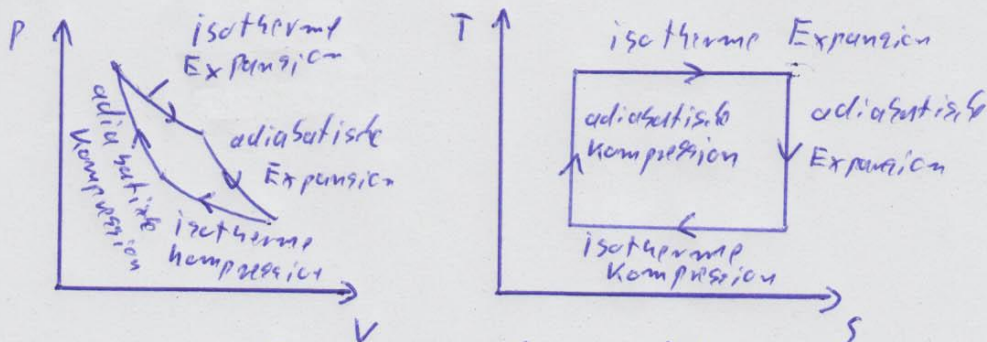 P
isotherme
Expansion
adiabatische
Kompression
adiabatische
Expansion
isotherme
Kompression
V
T
isotherme Expansion
adiabatische
Kompression
adiabatische
Expansion
isotherme
Kompression
S